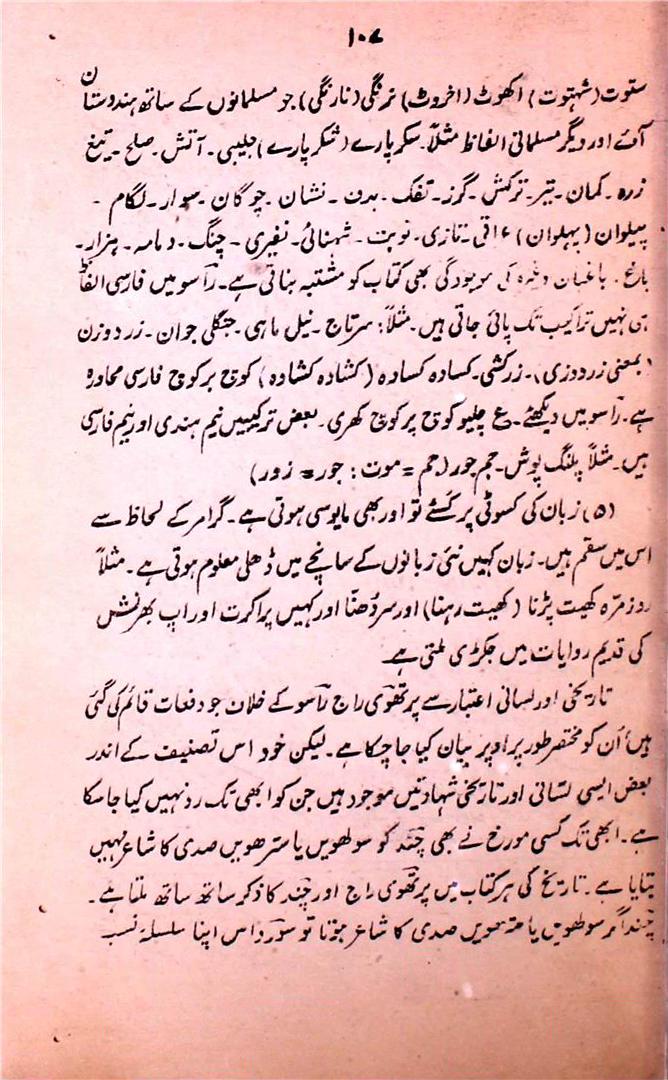 ۱۰۷
ستوت (شہتوت) اکھوٹ (اخروٹ) نرنگی (نارنگی) جو مسلمانوں کے ساتھ ہندوستان
آئے اور دیگر مسلمانی الفاظ مثلاً۔ سکرپارے (شکرپارے) جلیبی۔ آتش۔ صلح۔ تیغ
زرہ۔ کمان۔ تیر۔ ترکش۔ گرز۔ تفک۔ ہدف۔ نشان۔ چوگان۔ سوار۔ لگام۔
پیلوان (پہلوان) عراقی۔ تازی۔ نوبت۔ شہنائی۔ نفیری۔ چنگ۔ دمامہ۔ ہزار۔
باغ۔ باغبان وغیرہ کی موجودگی بھی کتاب کو مشتبہ بناتی ہے۔ راسو میں فارسی الفاظ
ہی نہیں تراکیب تک پائی جاتی ہیں۔ مثلاً: سرتاج۔ نیل ماہی۔ جنگلی جوان۔ زردوزن
(بمعنی زردوزی)۔ زرکشی۔ کسادہ کسادہ (کشادہ کشادہ) کوچ برکوچ فارسی محاورہ
ہے۔ راسو میں دیکھئے۔ ع چلیو کوچ پر کوچ کھری۔ بعض ترکیبیں نیم ہندی اور نیم فارسی
ہیں۔ مثلاً پلنگ پوش۔ جم جور (جم = موت : جور = زور)
(۵) زبان کی کسوٹی پر کسئے تو اور بھی مایوسی ہوتی ہے۔ گرامر کے لحاظ سے
اس میں سقم ہیں۔ زبان کہیں نئی زبانوں کے سانچے میں ڈھلی معلوم ہوتی ہے۔ مثلاً
روزمرّہ کھیت پڑنا (کھیت رہنا) اور سر دُھننا اور کہیں پراکرت اور اپ بھرنش
کی قدیم روایات میں جکڑی ملتی ہے۔
تاریخی اور لسانی اعتبار سے پرتھوی راج راسو کے خلاف جو دفعات قائم کی گئی
ہیں اُن کو مختصر طور پر اوپر بیان کیا جا چکا ہے۔ لیکن خود اس تصنیف کے اندر
بعض ایسی لسانی اور تاریخی شہادتیں موجود ہیں جن کو ابھی تک رد نہیں کیا جا سکا
ہے۔ ابھی تک کسی مورخ نے بھی چند کو سولھویں یا سترھویں صدی کا شاعر نہیں
بتایا ہے۔ تاریخ کی ہر کتاب میں پرتھوی راج اور چند کا ذکر ساتھ ساتھ ملتا ہے۔
چند اگر سولھویں یا سترھویں صدی کا شاعر ہوتا تو سورداس اپنا سلسلۂ نسب